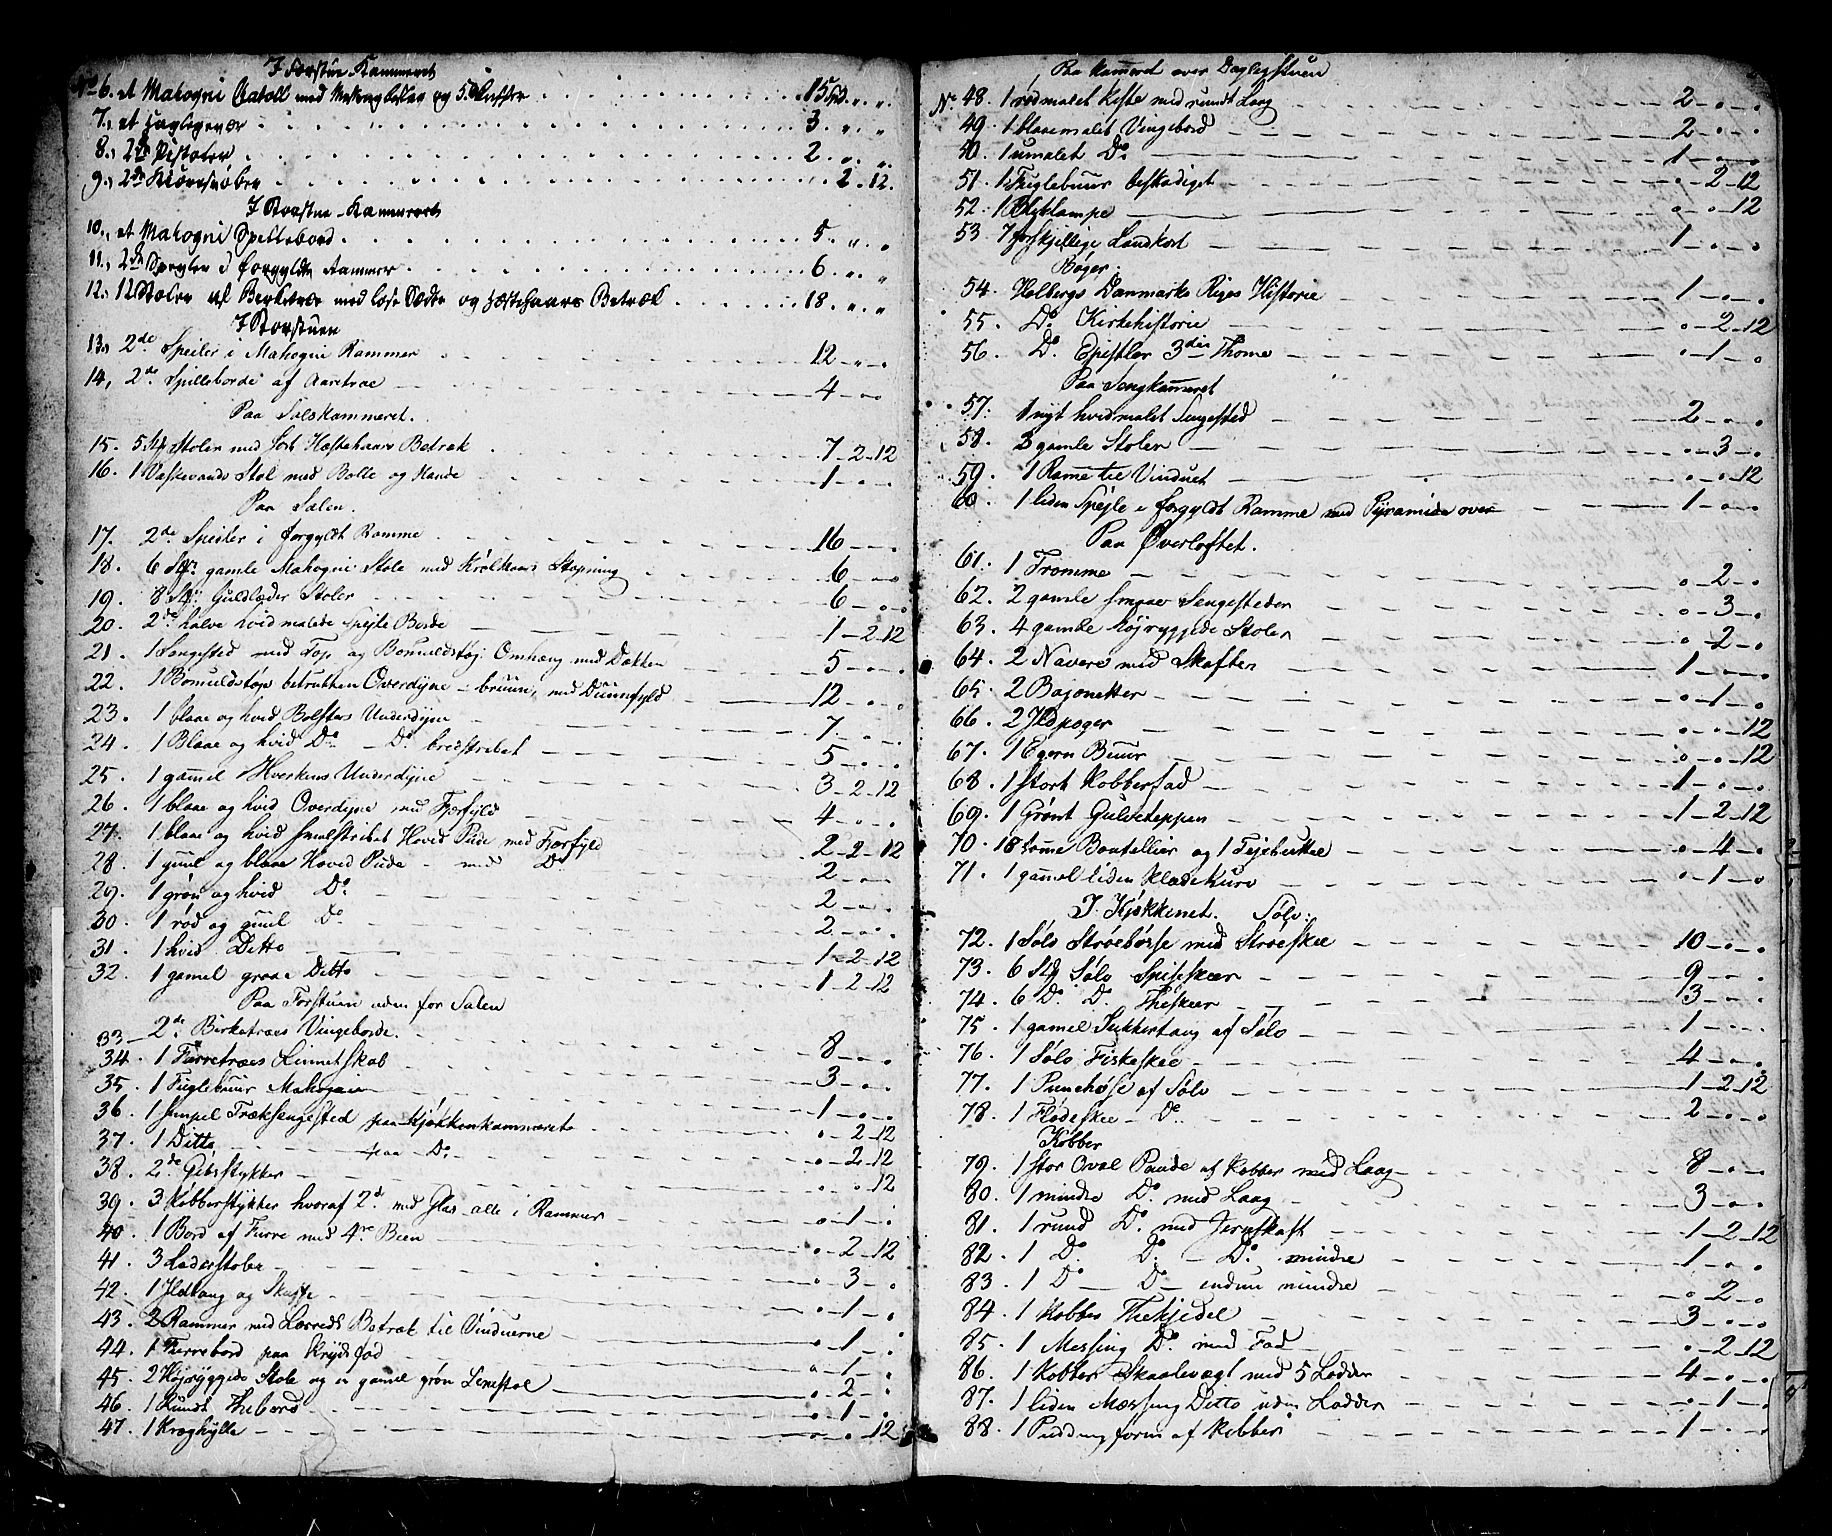 I Forstue Kammeret
No 6. et Mahogni Chatoll med Messingbeslag og 5 Skuffer 15 Sp. „ „
7., et Haglgevær 3 „ „
8., 2de Pistoler 2 „ „
9., 2de 2 12.
I Storstue-Kammeret
10., et Mahogni Spillebord 5 „ „
11., 2de Speyler i forgyldte Rammer 6 „ „
12., 12 Stoler af Berketræ med løse Sæder og Hæstehaars Betræk 18 „ „
I Storstuen
13., 2de Speiler i Mahogni Rammer 12 „ „
14, 2de Spilleborde af Aaretræ 4 - o - o
Paa Salskammeret.
15. 5 St. Stoler med Sort Hæstehaars Betræk 7-2-12
16. 1 Vaskevands Stol med Bolle og Kande 1 - o - o
Paa Salen.
17. 2de Speiler i forgyldt Ramme 16 - o - o
18. 6 St. gamle Mahogni Stole med Krølhaars Stopning 6 - o - o
19. 8 St. Guldlæder Stoler 6 - o - o
20. 2de halve hvidmalede Speile Borde 1-2-12
21. 1 Sengested med Top og Bomuldstøj Omhæng med Dækken 5 - o - o
22. 1 Bomuldstøjs betrukken Overdyne - bruun, med Duunfyld 12 - o - o
23. 1 blaae og hvid Bolsters Underdyne 7 - o - o
24. 1 Blaae og hvid Do - Do bredstribet 5 - o - o
25. 1 gamel Hverkens Underdyne 3-2-12
26. 1 blaae og hvid Overdyne med Fjærfyld 4 - o - o
27. 1 blaae og hvid smalstribet Hoved Pude med Fjærfyld 2-2-12
28. 1 guul og blaae Hoved Pude - med Do 2 - o - o
29. 1 grøn og hvid Do 2 - o - o
30. 1 rød og guul Do 2 - o - o
31. 1 hvid Ditto 1-2-12
32. 1 gamel graae Ditto 1-2-12
Paa Forstuen uden for Salen
33- 2de Birketræes Vingeborde. 8 - o - o
34. 1 Furretræes Linnetskab 3 - o - o
35. 1 Fuglebuur Mahogani 1 - o - o
36. 1 simpel Træksengested paa Kjøkkenkammeret o-2-12
37. 1 Ditto paa Do o-2-12
38. 2de Gibsstykker o-o-12
39. 3 Kobberstykker hvoraf 2de med Glas alle i Rammer o-1-o
40. 1 Bord af Furre med 4re Been o-2-12
41. 3 Læderstoler o-3-o
42. 1 Ildtang og Skuffe o-1-o
43. 2 Rammer med Lærreds Betræk til Vinduerne o-1-o
44. 1 Furrebord paa Krydsfod o-1-o
45. 2 Højryggede Stole og en gamel grøn Lenestol o-2-o
46. 1 Rundt Thebord o-1-o
47. 1 Kraghylle o-o-12
Paa Kammeret over Dagligstuen
No 48. 1 rødmalet Kiste med rundt Laag 2 - o - o
49. 1 blaaemalet Vingebord 2 - o - o
50. 1 umalet Do 1 - o - o
51. 1 Fuglebuur beskadiget o-2-12
52. 1 Bliklampe o-o-12
53. 7 forskjellige Landkort 1 - o - o
Bøger.
54. Holbergs Danmarks Riges Historie 1 - o - o
55. Do Kirkehistorie o-2-12
56. Do Epistler 3die Thome o-1-o
Paa Sengkammeret
57. 1 nyt hvidmalet Sengested 2 - o - o
58. 3 gamle Stoler o-3-o
59. 1 Rame til Vinduet o-o-12
60. 1 liden Spejle i forgyldt Ramme med Pyramide over 1 - o - o
Paa Øverloftet.
61. 1 Tromme o-2-o
62. 2 gamle smaae Sengesteder o-3-o
63. 4 gamle højryggede Stoler o-2-o
64. 2 Navere med Skafter 1 - o - o
65. 2 Bajonetter o-1-o
66. 2 Ildpoger o-o-12
67. 1 Egern Buur o-o-12
68. 1 stort Kobberfad 1 - o - o
69. 1 Grønt Gulvteppen 1-2-12
70. 18 tomme Boutellier og 1 Fejebrikke o-4-o
71. 1 gammel liden Klædekurv o-1-o
I Kjøkkenet. Sølv:
72. 1 Sølv Strøebøsse med Strøeskee 10 - o - o
73. 6 St. Sølv Spiseskeer 9 - o - o
74. 6 Do Do Theskeer 3 - o - o
75. 1 gamel Sukkertang af Sølv 1 - o - o
76. 1 Sølv Fiskeskee 4 - o - o
77. 1 Punchøse af Sølv 1-2-12
78. 1 Flødeskee - Do 2 - o - o
Kobber
79. 1 stor Oval Pande af Kobber med Laag 8 - o - o
80. 1 mindre Do med Laag 3 - o - o
81. 1 rund Do med Jernskaft 1-2-12
82. 1 Do Do - Do mindre 1 - o - o
83. 1 Do Do endnu mindre o-2-o
84. 1 Kobber Thekjedel 3 - o - o
85. 1 Messing Do med Fad o-2-12
86. 1 Kobber Skaalevægt med 5 Lodder 4 - o - o
87. 1 liden Messing Ditto uden Lodder o-1-o
88. 1 Puddingform af Kobber 1 - o - o